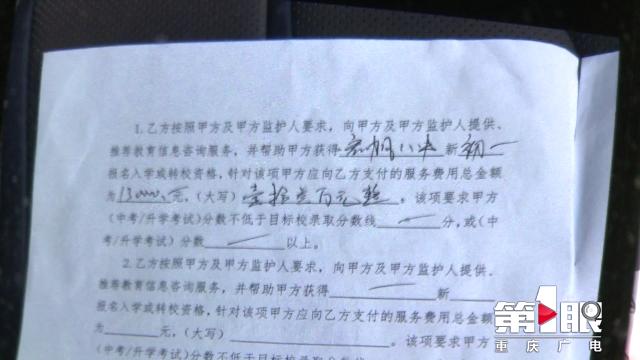 1.乙方按照甲方及甲方监护人要求，向甲方及甲方监护人提供、
推荐教育信息咨询服务，并帮助甲方获得 宏帆八中 新 初一
报名入学或转校资格，针对该项甲方应向乙方支付的服务费用总金额
为 13000 元，（大写） 壹拾叁百元整 。该项要求甲方
（中考/升学考试）分数不低于目标校录取分数线 分，或（中
考/升学考试）分数 以上。
2.乙方按照甲方及甲方监护人要求，向甲方及甲方监护人提供、
推荐教育信息咨询服务，并帮助甲方获得 新
报名入学或转校资格，针对该项甲方应向乙方支付的服务费用总金额
为 元，（大写）
（中考/升学考试）分数不低于目标校录取分数线
第1眼
重庆广电